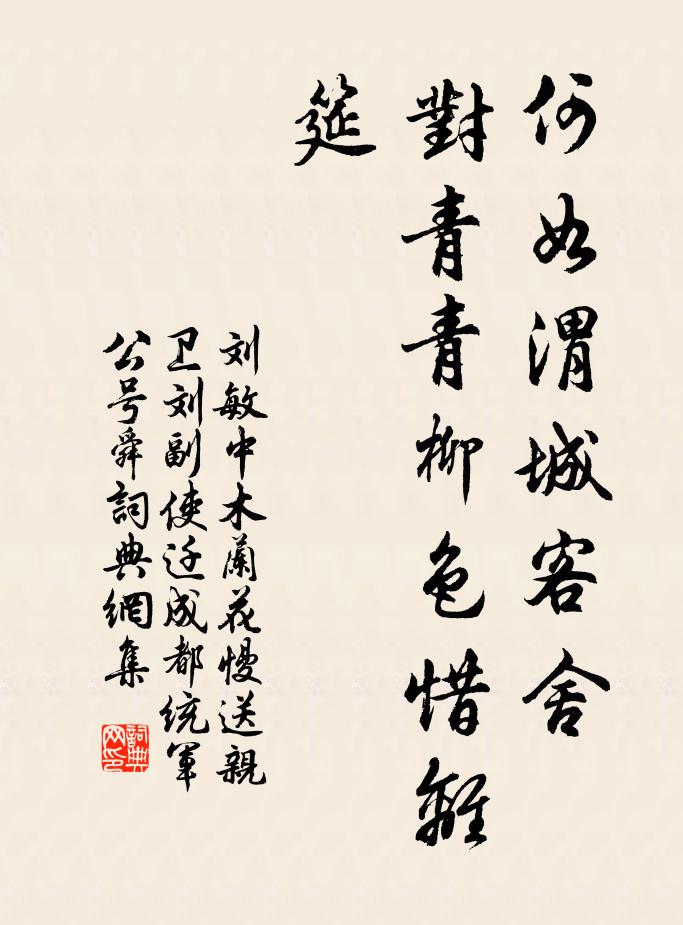 何如渭城客舍
對青青柳色惜離
筵
刘敏中木蘭花慢送親
卫刘副使迁成都统军
公号舜詞典網集
詞典
网印